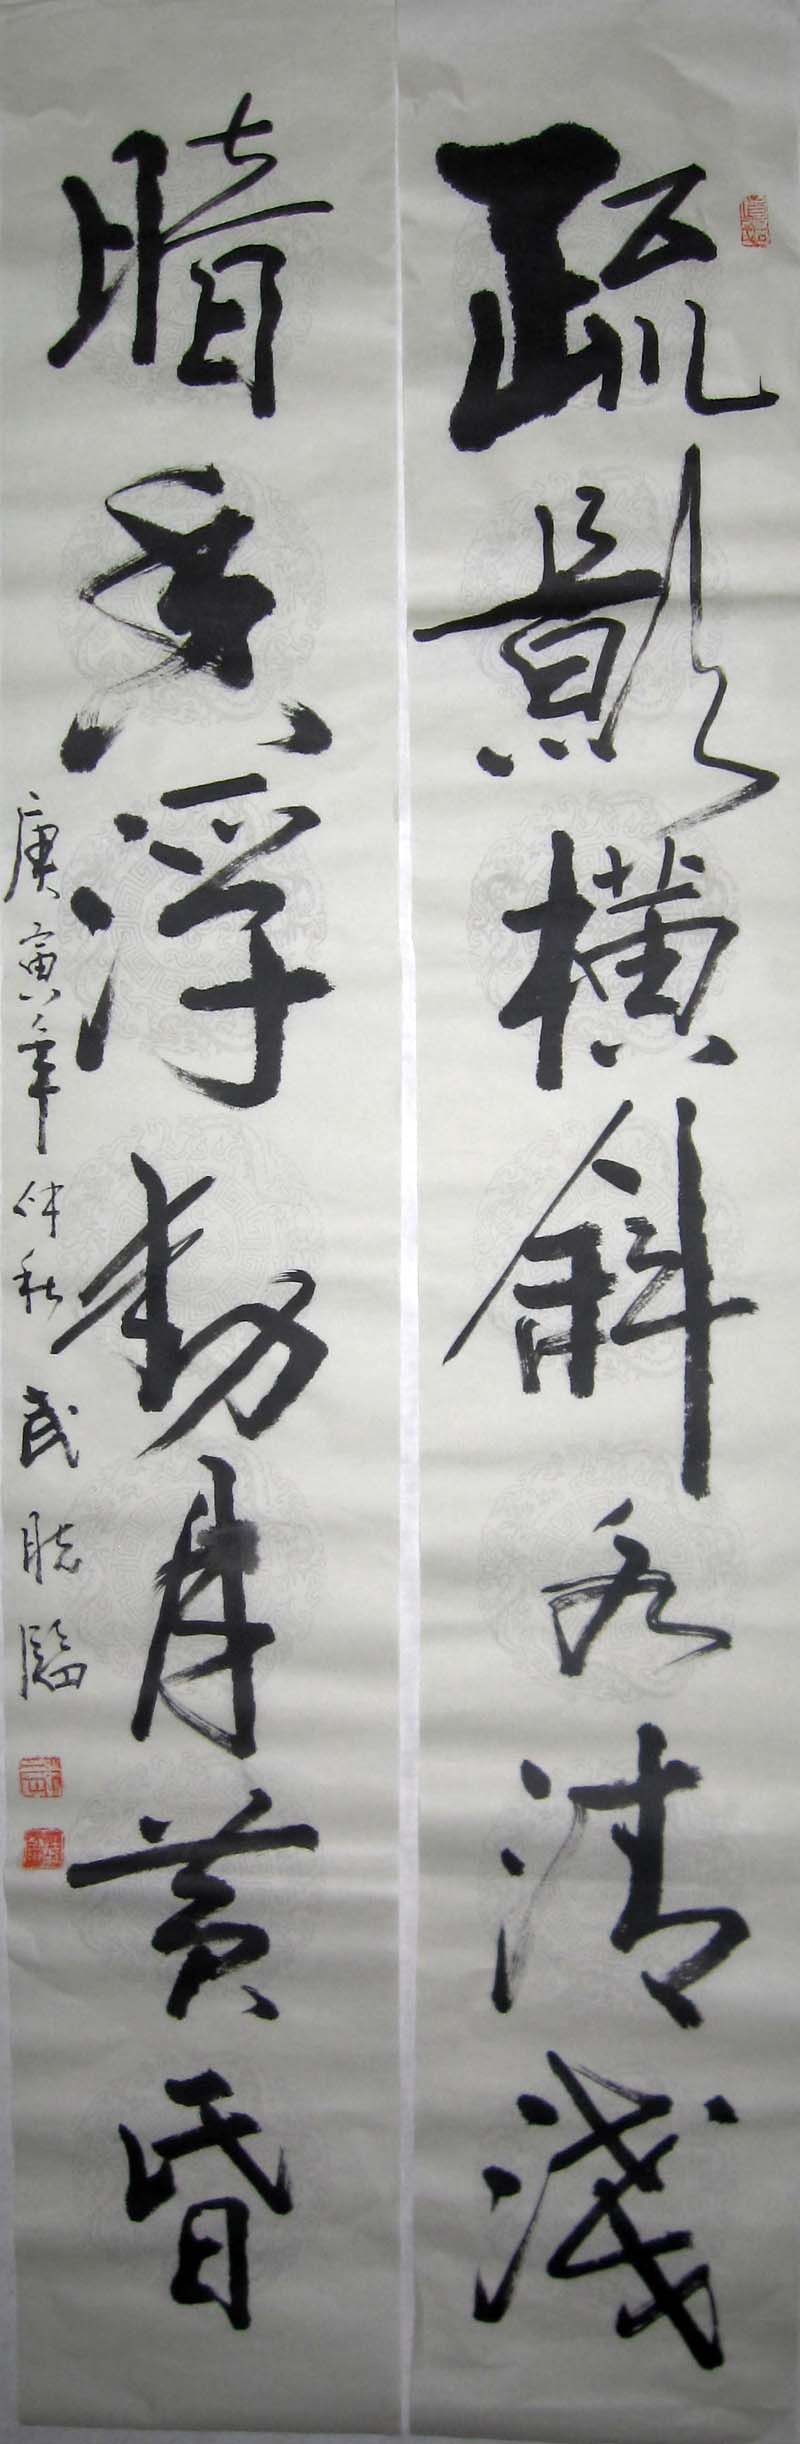 疏影橫斜水清淺
暗香浮動月黃昏
庚寅年仲秋武聪臨